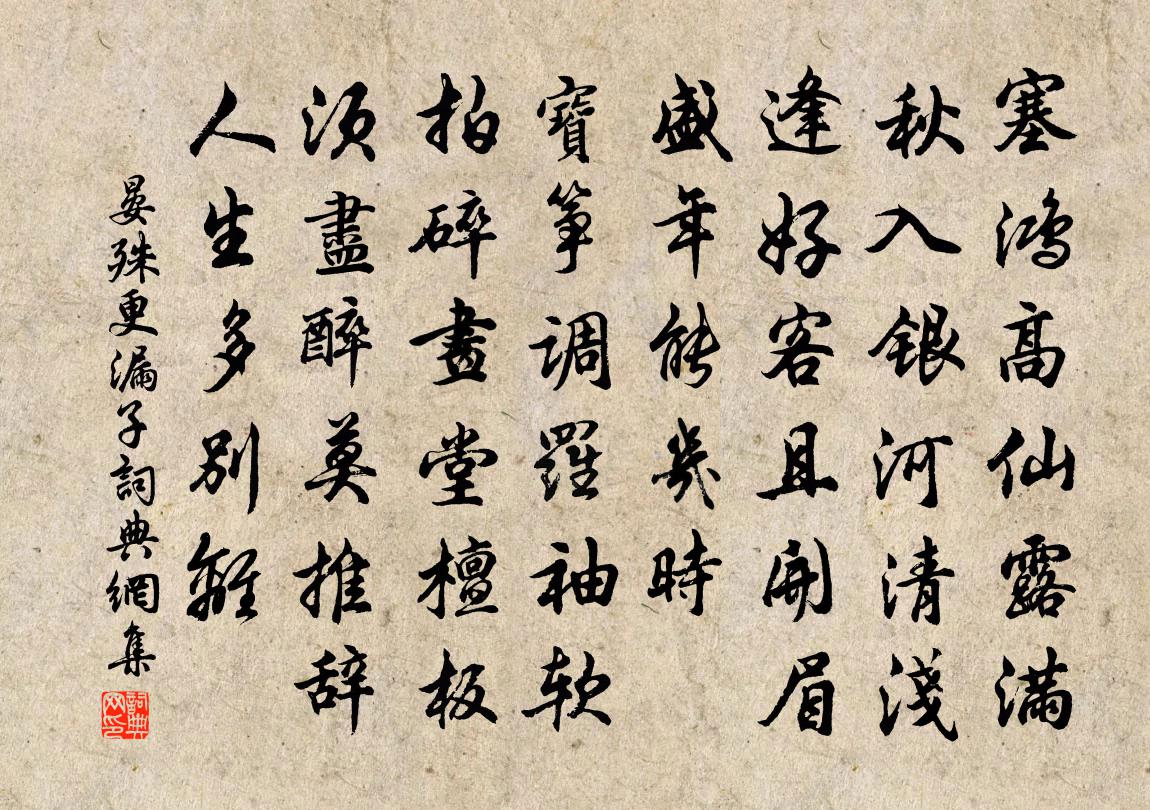 塞鸿高仙露满
秋入银河清淺
逢好客且開眉
盛年能幾時
寶筝调羅袖软
拍碎畫堂檀板
須盡醉莫推辞
人生多別離
晏殊更漏子詞典網集
詞典网印